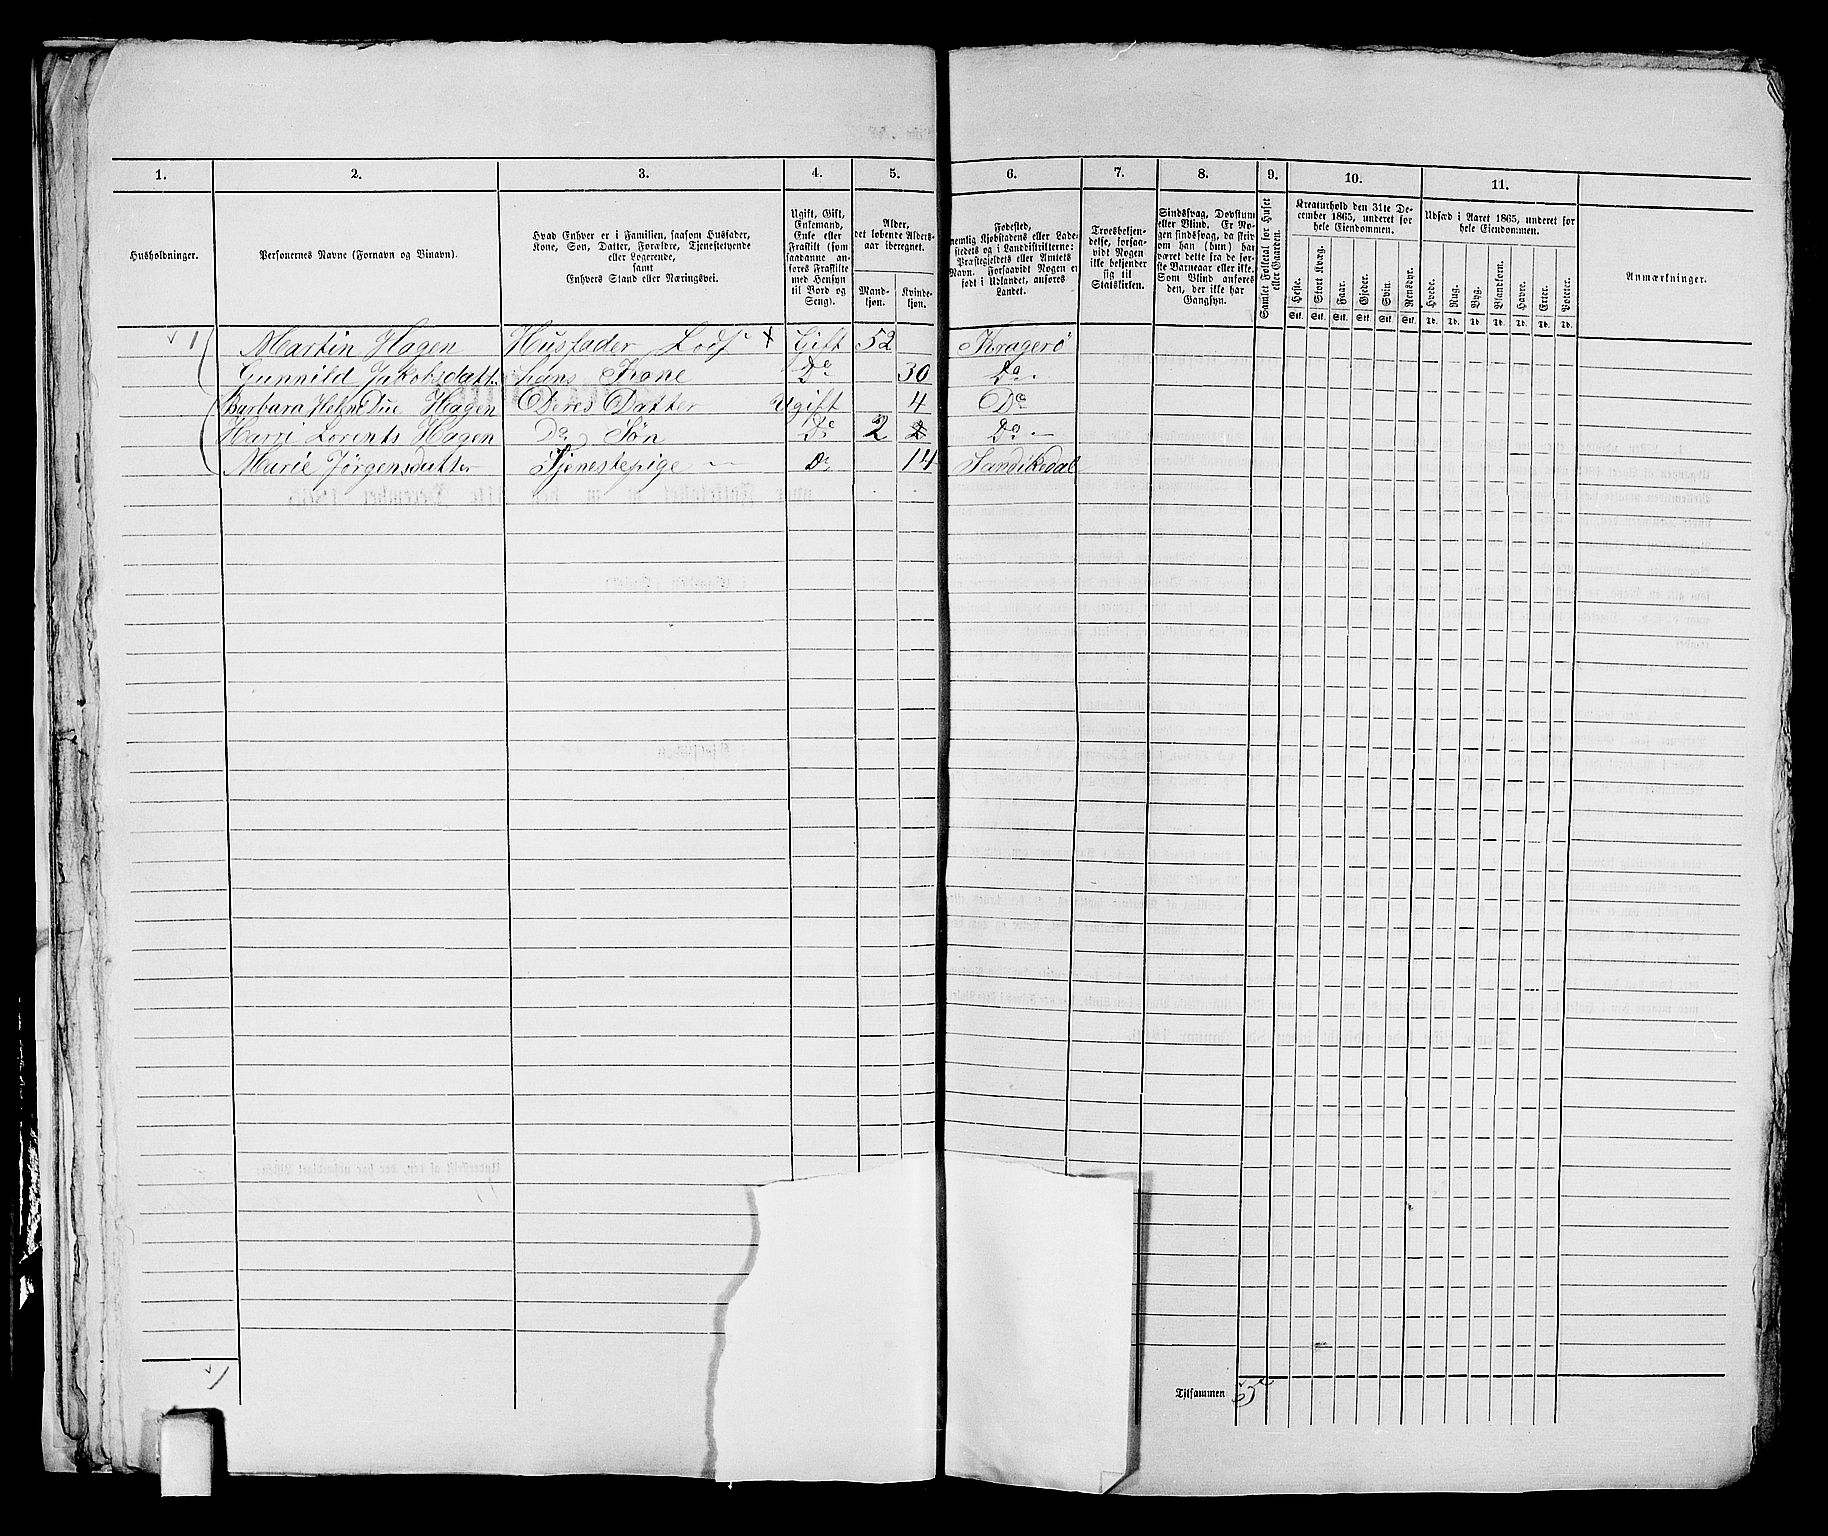 1. 2. 3. 4. 5. 6. 7. 8. 9. 10. 11.
Husholdninger.
Personernes Navne (Fornavn og Tilnavn).
Hvad Enhver er i Familien, saasom Husfader,
Kone, Søn, Datter, Forældre, Tjenestetyende
eller Logerende,
samt
Enhvers Stand eller Næringsvei.
Ugift, Gift,
Enkemand,
Enke eller
Fraskilt (som
saadanne an-
føres Fraskilte
med Hensyn
til Bord og
Seng).
Alder,
det løbende Alders-
aar iberegnet.
Mand-
kjøn.
Kvinde-
kjøn.
Fødested,
nemlig Kjøbstadens eller Lade-
stedets og i Landdistrikterne:
Præstegjeldets eller Amtets
Navn. Forsaavidt Nogen er
født i Udlandet, anføres
Landet.
Troesbekjen-
delse, forsaa-
vidt Nogen
ikke bekjender
sig til
Statskirken.
Sindssvag, Døvstum
eller Blind. Er No-
gen sindssvag, da skriv
om han (hun) har
været dette fra de før-
ste Barneaar eller ikke.
Som Blind anføres
den, der ikke har
Gangsyn.
Samlet Folketal for Huset
eller Gaarden.
Kreaturhold den 31te De-
cember 1865, underet for
hele Eiendommen.
Heste. Stort Kvæg. Faar. Gjeder. Svin. Rensdyr.
Stk. Stk. Stk. Stk. Stk. Stk.
Udsæd i Aaret 1865, underet for
hele Eiendommen.
Hvede. Rug. Byg. Blandkorn. Havre. Erter. Poteter.
Td. Td. Td. Td. Td. Td. Td.
Anmærkninger.
1 Martin Hagen Husfader Lods x Gift 52 Kragerö
Gunnild Jakobsdatt. hans Kone Do 30 Do
Barbara Helene Hagen Deres Datter Ugift 4 Do
Harri Lorents Hagen Do Søn Do 2 2 Do
Marie Jörgensdatter Tjenestepige Do 14 Sandökedal
1
Tilsammen 5